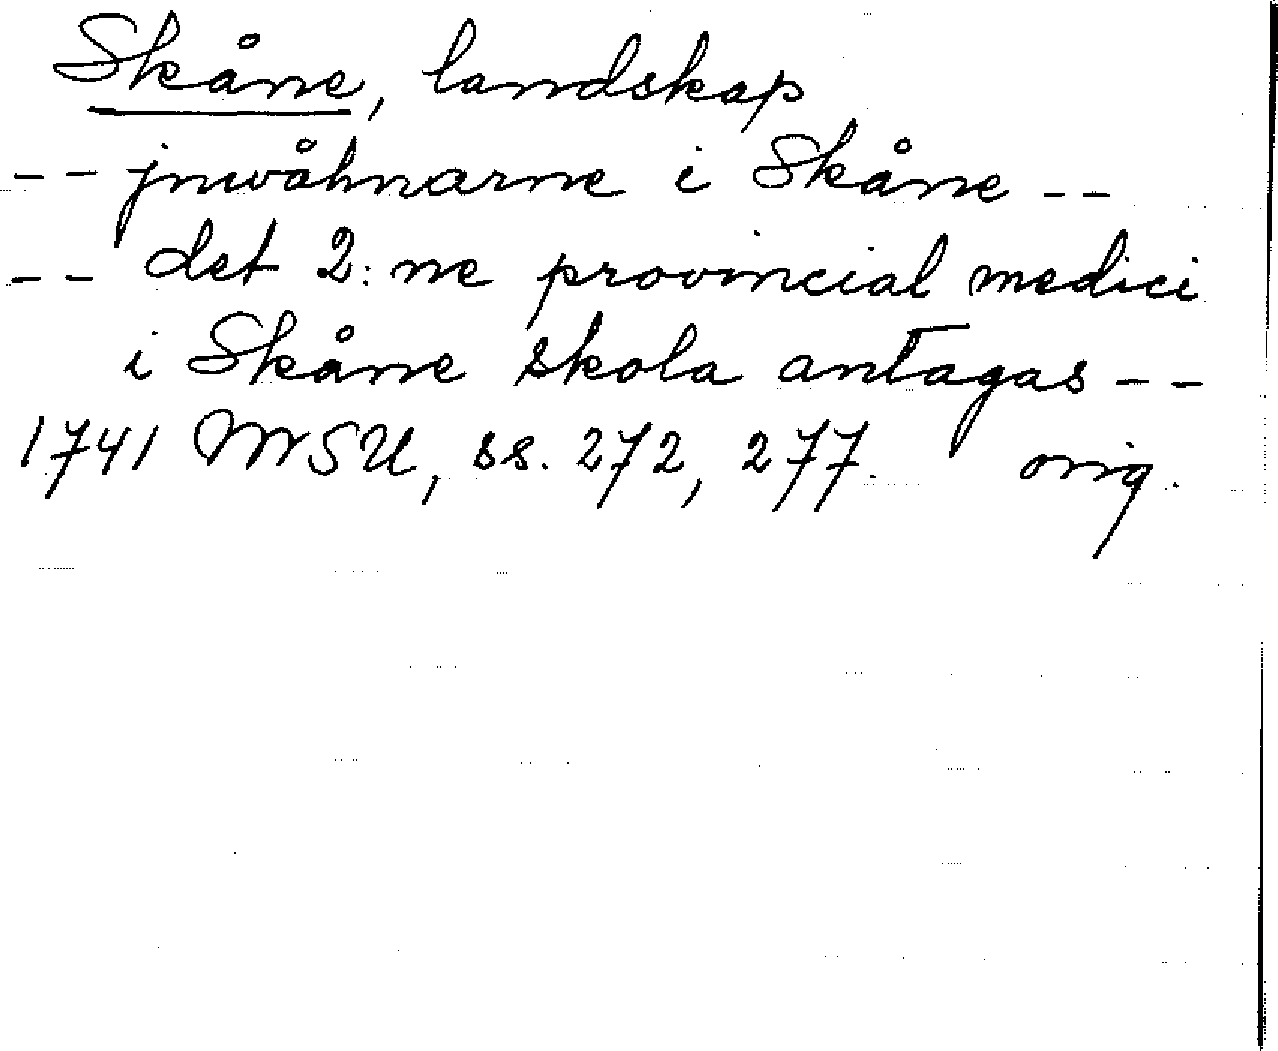 Skåne, landskap
-- jnwåhnarne i Skåne --
-- det 2:ne provincial medici
i Skåne skola antagas --
1741 MSU, ss. 272, 277. orig.